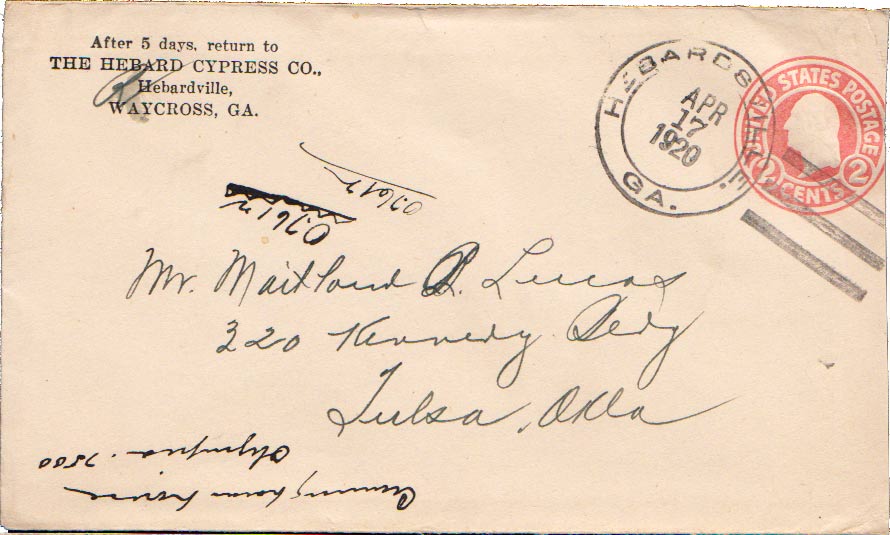 After 5 days, return to
THE HEBARD CYPRESS CO.,
Hebardville,
WAYCROSS, GA.
HEBARDSVILLE.
GA.
APR
17
1920
UNITED STATES POSTAGE
2 CENTS 2
Mr. Maitland R. Lucas
320 Kennedy Bldg
Tulsa, Okla
07612
07612
Olympia. 7500